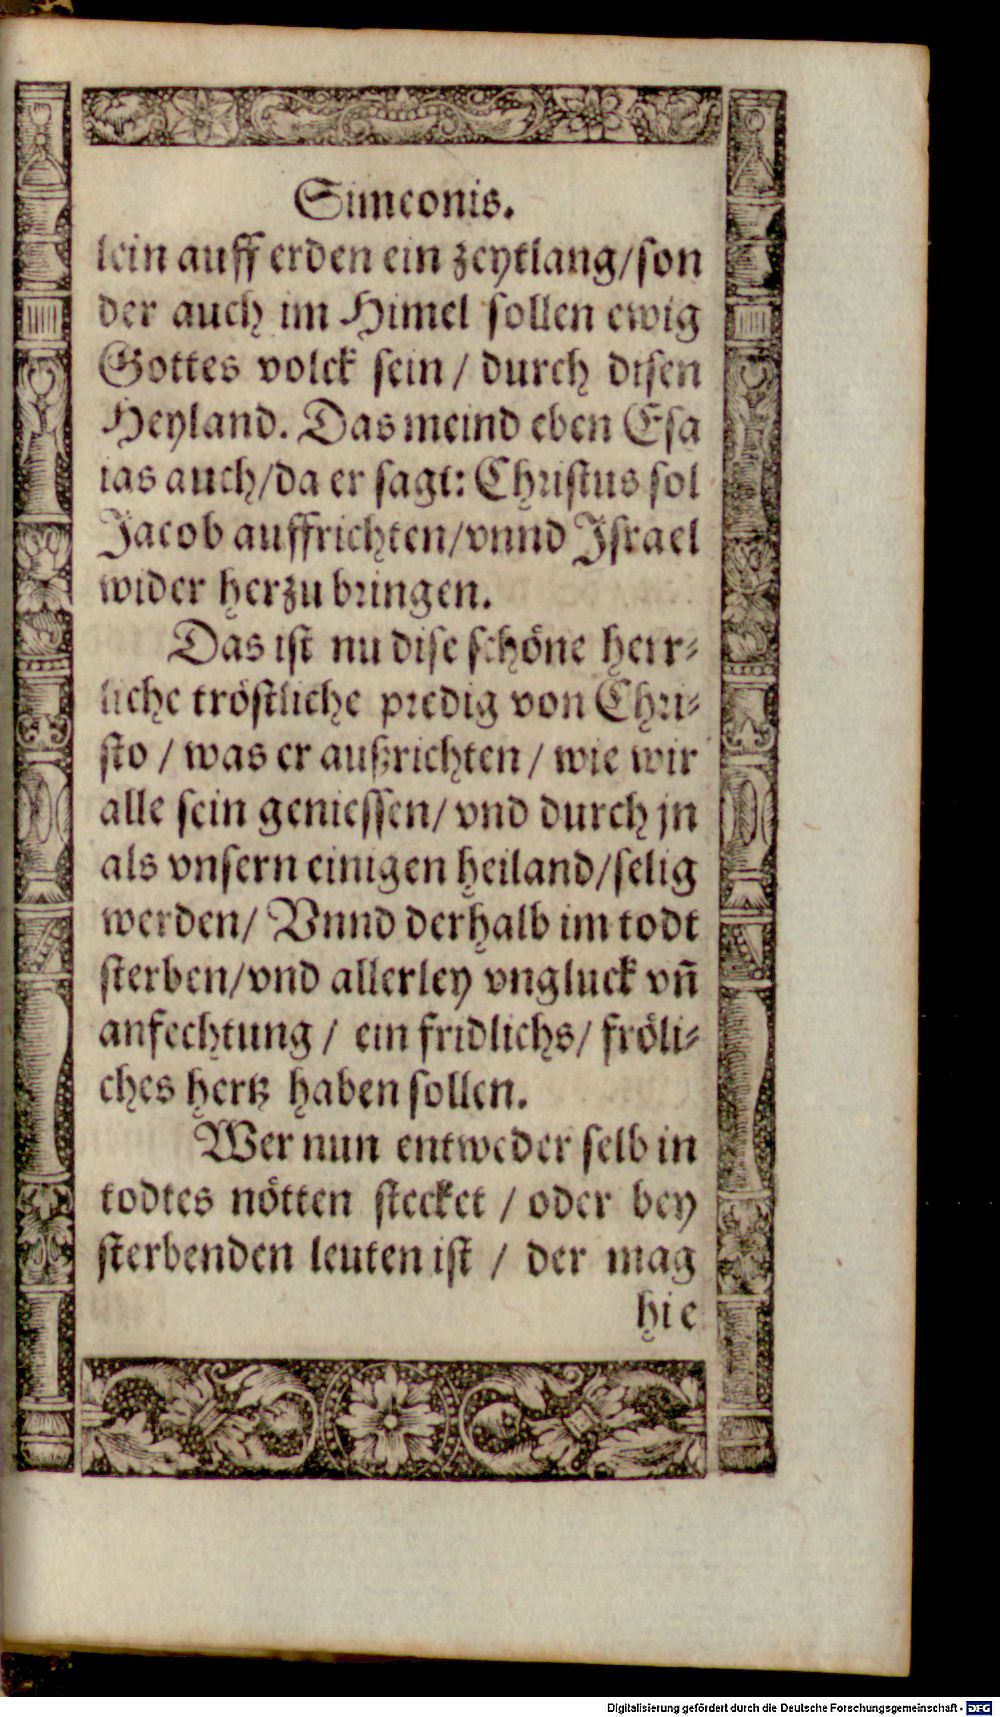 Simeonis.
lein auff erden ein zeytlang/son
der auch im Himel sollen ewig
Gottes volck sein / durch disen
Heyland. Das meind eben Esa
ias auch/da er sagt: Christus sol
Jacob auffrichten/vnnd Israel
wider herzu bringen.
Das ist nu dise schöne herr⸗
liche tröstliche predig von Chri⸗
sto / was er außrichten / wie wir
alle sein geniessen/ vnd durch jn
als vnsern einigen heiland/selig
werden/ Vnnd derhalb im todt
sterben/vnd allerley vngluck vñ
anfechtung / ein fridlichs/ fröli⸗
ches hertz haben sollen.
Wer nun entweder selb in
todtes nötten stecket / oder bey
sterbenden leuten ist / der mag
hie
Digitalisierung gefördert durch die Deutsche Forschungsgemeinschaft - DFG